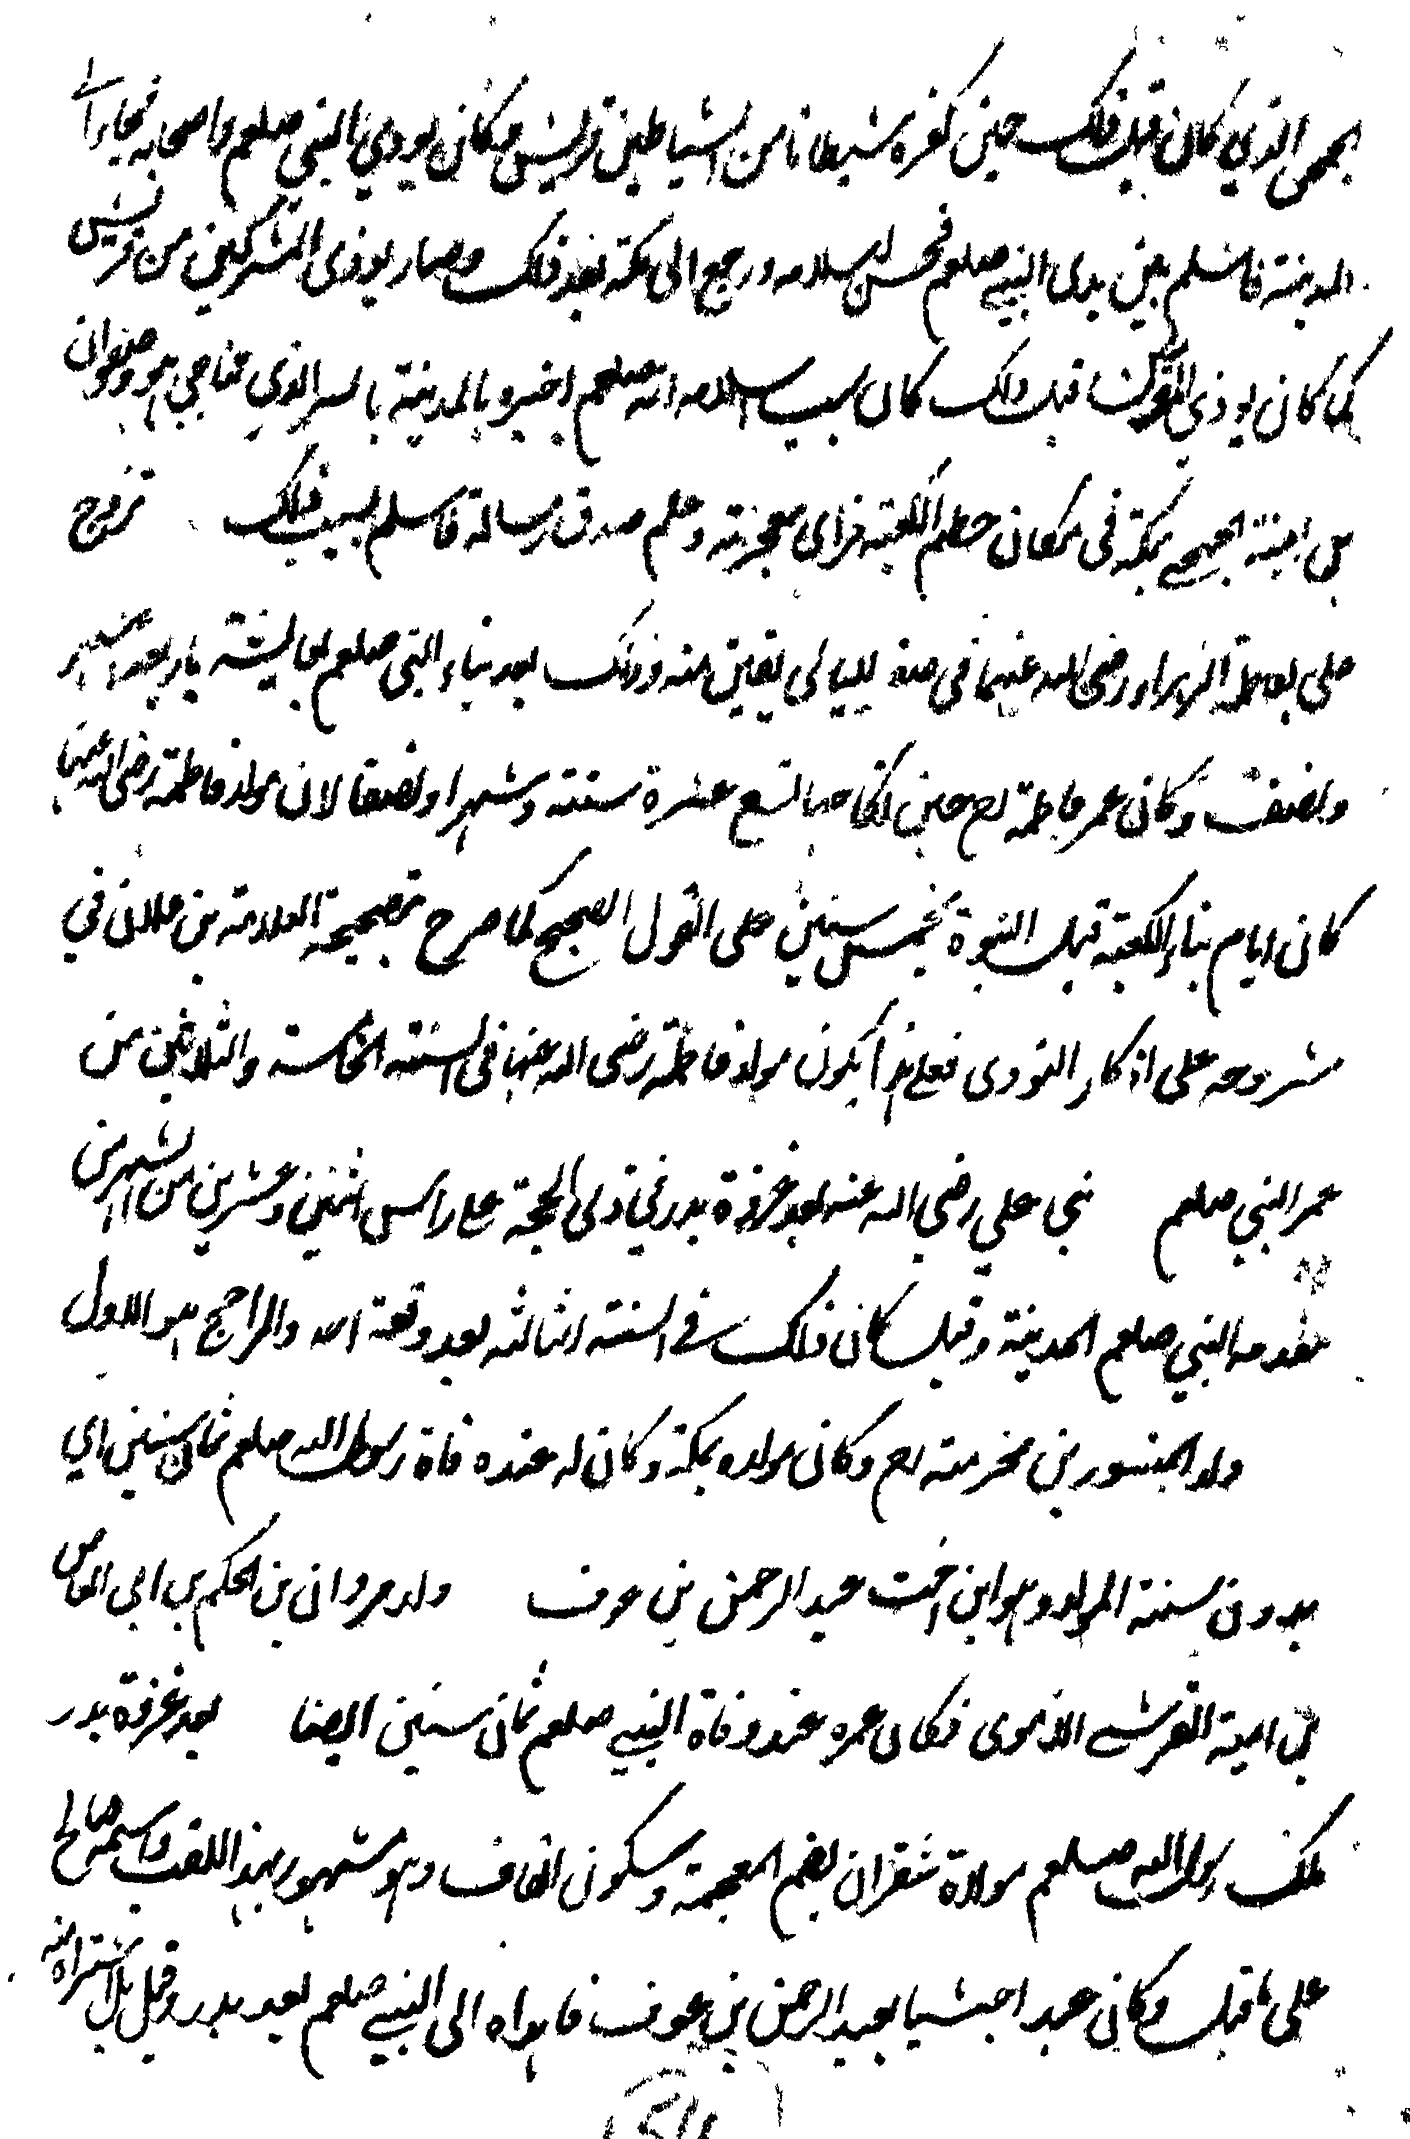 الجمحي الذي كان قبل ذلك حين كفره شيطانا من الشياطين قريش وكان يوذي النبي صلعم واصحابه فجاء الى
المدينة فاسلم بين يدى النبي صلعم فحسن اسلامه ورجع الى مكة بعد ذلك وصار يوذى المشركين من قريش
كما كان يوذي قبل ذلك كان سبب اسلامه انه صلعم اخبره بالمدينة بالسر الذي تناجي هو وصفوان
بن امية الجمحي بمكة في مكان حطم الكعبة فراى معجزته وعلم صدق رسالة فاسلم بسبب ذلك تزوج
علي بفاطمة الزهراء رضى الله عنهما في صفر لليالي بقين منه وذلك بعد بناء النبي صلعم بعايشة باربعة اشهر
ونصف وكان عمر فاطمة رضع حين نكاحها تسع عشرة سنة وشهرا ونصفا لان مولد فاطمة رضى الله عنها
كان ايام بناء الكعبة قبل النبوة بخمس سنين على القول الصحيح كما صرح بتصحيحه العلامة بن علان في
شروحه على اذكار النووى فعلى هذا يكون مولد فاطمة رضى الله عنها في السنة الخامسة والثلاثين من
عمر النبي صلعم بنى علي رضي الله عنه بعد غزوة بدر في ذى الحجة على راس اثنين وعشرين من الشهر من
مقدمه النبي صلعم المدينة وقيل كان ذلك في السنة الثالثة بعد وقعة احد والراجح هو الاول
ولد المسور بن مخرمة رضع وكان مولده بمكة وكان له عنده فاة رسول الله صلعم ثمان سنين اي
بدون سنة المولد وهو ابن اخت عبد الرحمن بن عوف ولد مروان بن الحكم بن ابي العاص
بن امية القرشي الاموى فكان عمره عند وفاة النبي صلعم ثمان سنين ايضا بعد غزوة بدر
ملك رسول الله صلعم مولاة شقران بضم المعجمة وسكون القاف وهو مشهور بهذا اللقب واسمه صالح
على ما قيل وكان عبدا حبشيا لعبد الرحمن بن عوف فاهداه الى النبي صلعم بعد بدر وقيل بل اشتراه منه